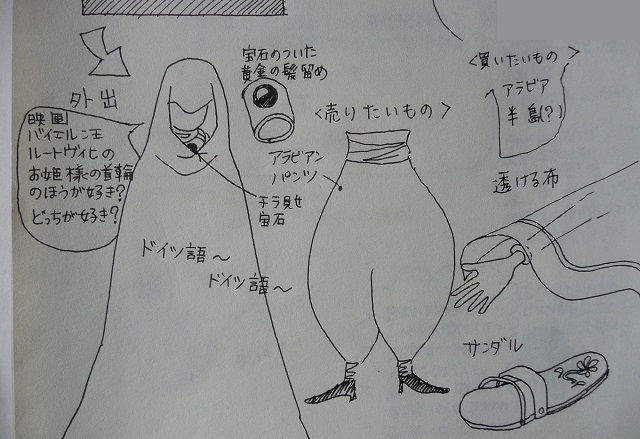 外出
映画
バイエルン王
ルートヴィヒの
お姫様の首輪
のほうが好き?
どっちが好き?
宝石のついた
黄金の髪留め
<売りたいもの>
アラビアン
パンツ
チラ見せ
宝石
ドイツ語〜
ドイツ語〜
<買いたいもの>
アラビア
半島(?)
透ける布
サンダル